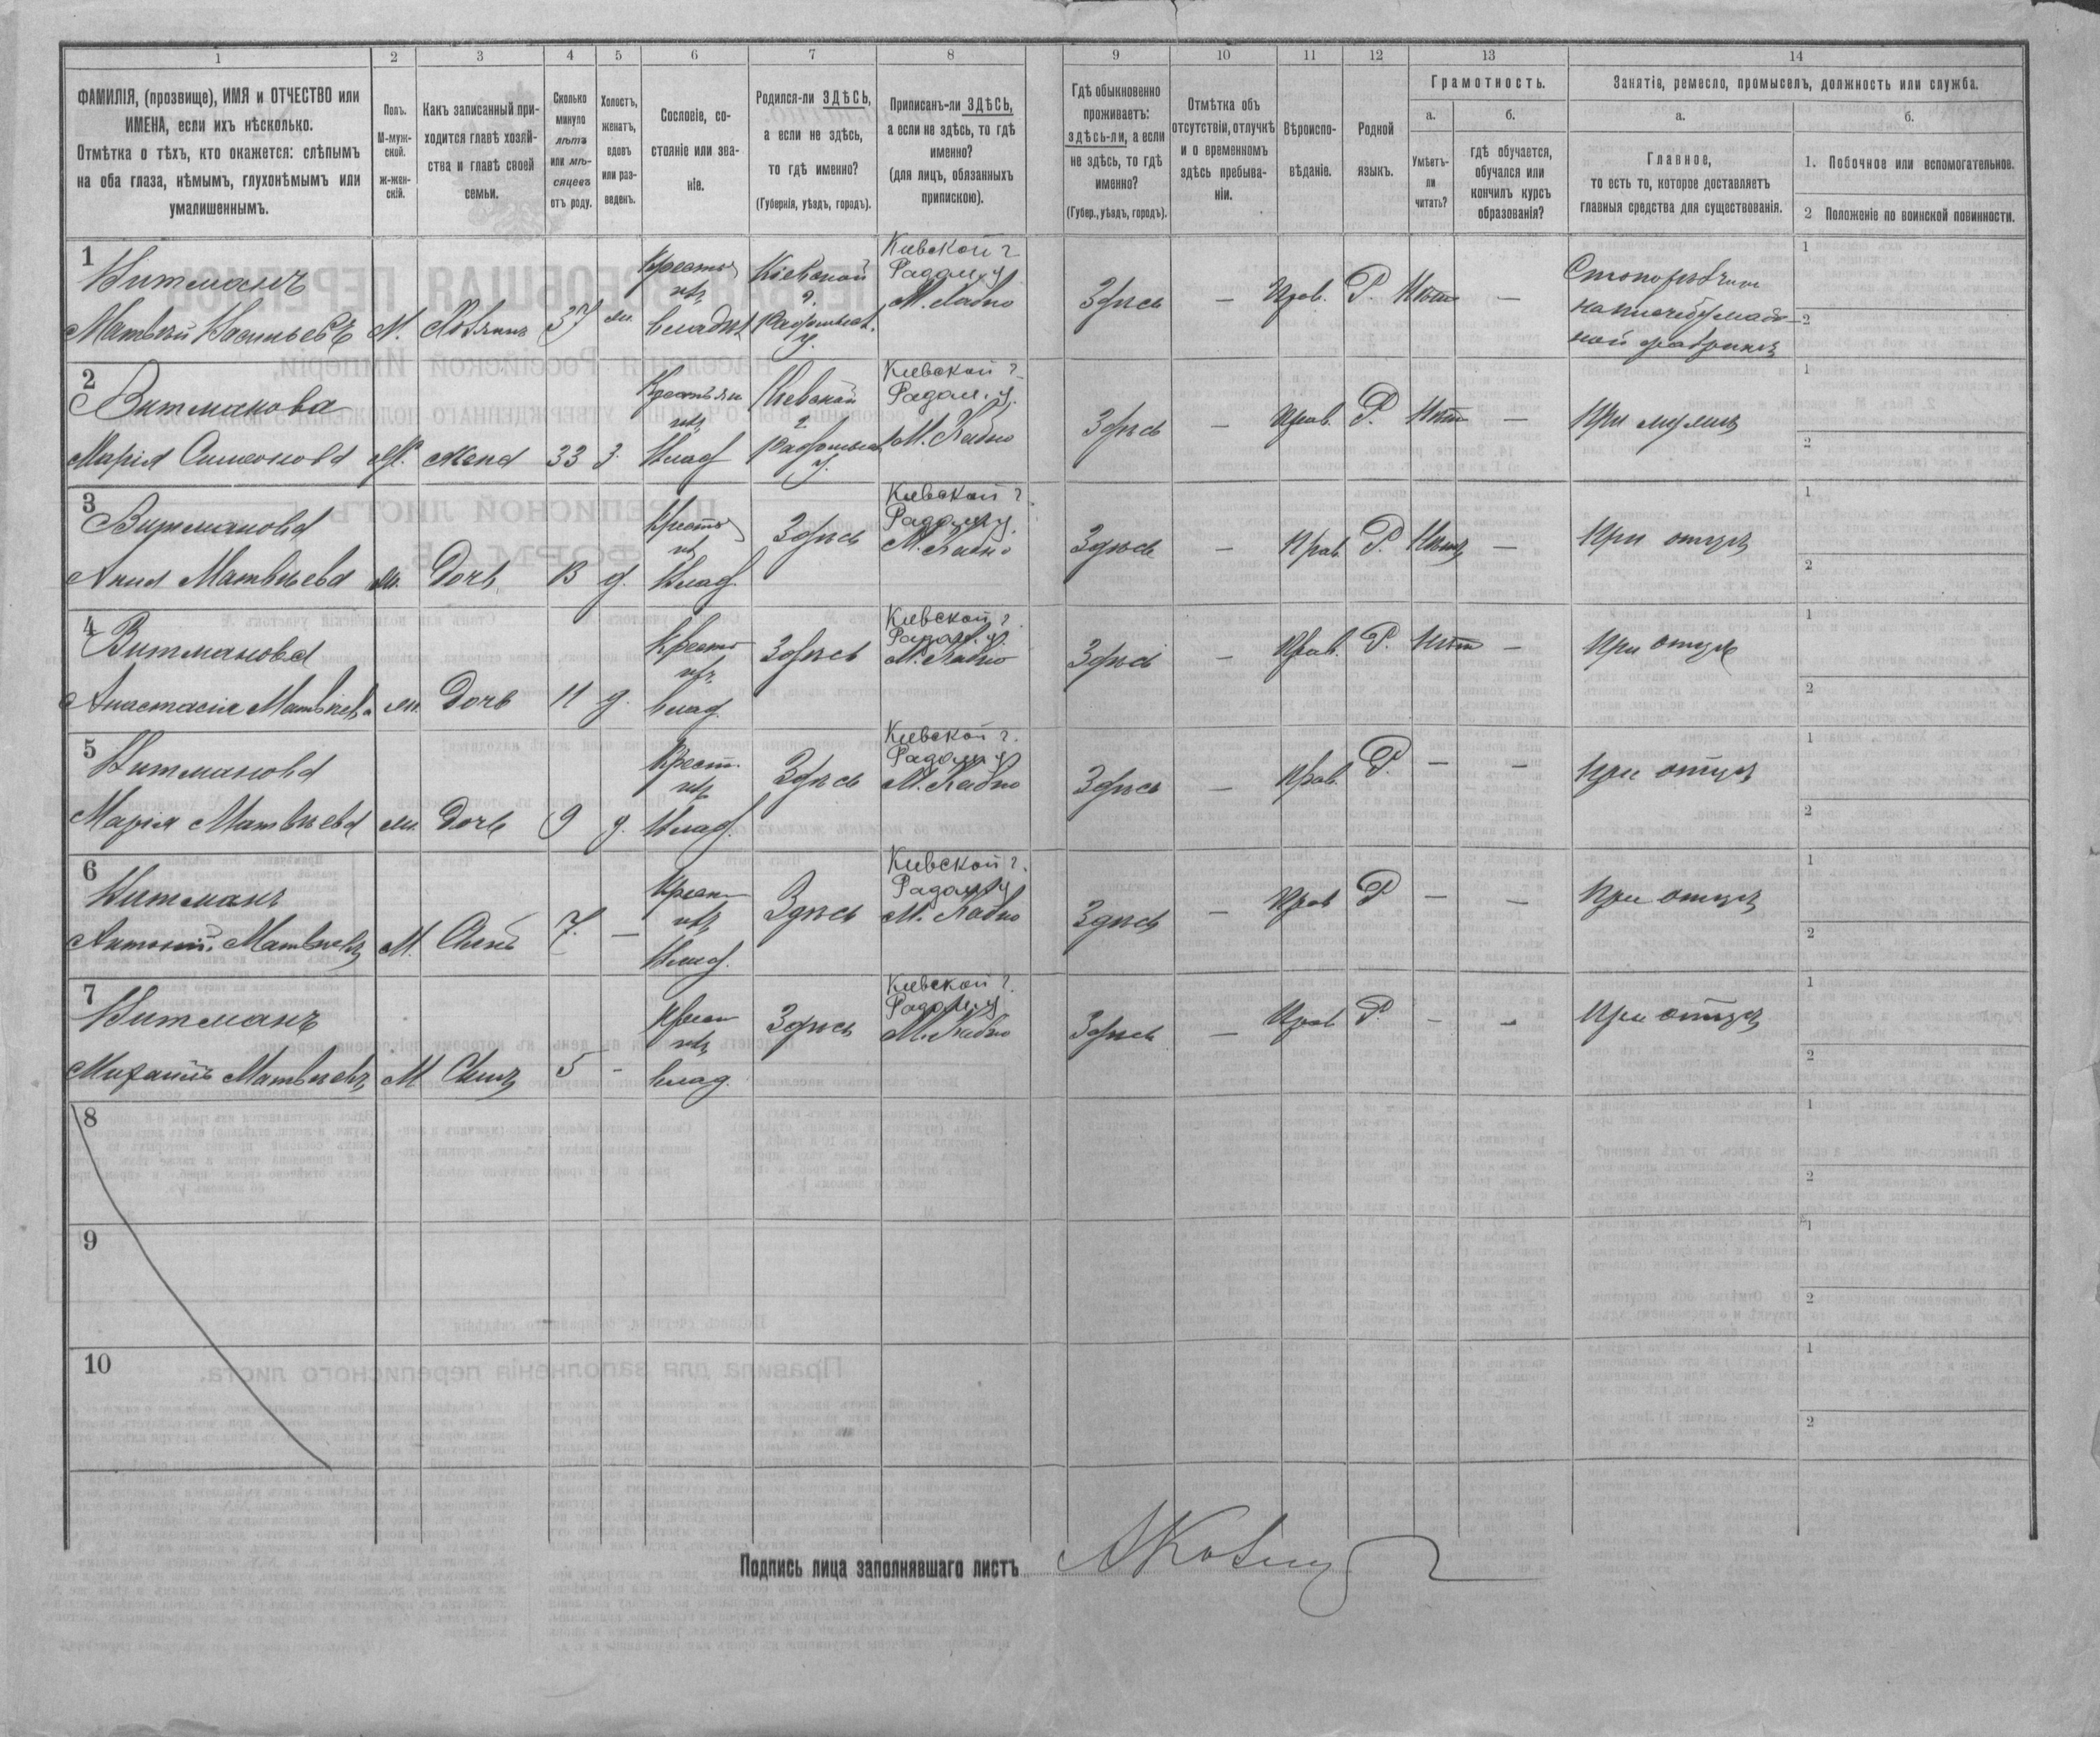 1 2 3 4 5 6 7 8 9 10 11 12 13 14
ФАМИЛІЯ, (прозвище), ИМЯ и ОТЧЕСТВО или
ИМЕНА, если ихъ нѣсколько.
Отмѣтка о тѣхъ, кто окажется: слѣпымъ
на оба глаза, нѣмымъ, глухонѣмымъ или
умалишеннымъ.
Полъ.
М-муж-
ской.
ж-жен-
скій.
Какъ записанный при-
ходится главѣ хозяй-
ства и главѣ своей
семьи.
Сколько
минуло
лѣтъ
или мѣ-
сяцевъ
отъ роду.
Холостъ,
женатъ,
вдовъ
или раз-
веденъ.
Сословіе, со-
стояніе или зва-
ніе.
Родился-ли ЗДѢСЬ,
а если не здѣсь,
то гдѣ именно?
(Губернія, уѣздъ, городъ).
Приписанъ-ли ЗДѢСЬ,
а если не здѣсь, то гдѣ
именно?
(для лицъ, обязанныхъ
припискою).
Гдѣ обыкновенно
проживаетъ:
здѣсь-ли, а если
не здѣсь, то гдѣ
именно?
(Губер., уѣздъ, городъ).
Отмѣтка объ
отсутствіи, отлучкѣ
и о временномъ
здѣсь пребыва-
ніи.
Вѣроиспо-
вѣданіе.
Родной
языкъ.
Грамотность.
а.
Умѣетъ-
ли
читать?
б.
гдѣ обучается,
обучался или
кончилъ курсъ
образованія?
Занятія, ремесло, промыселъ, должность или служба.
а.
Главное,
то есть то, которое доставляетъ
главныя средства для существованія.
б.
1. Побочное или вспомогательное.
2 Положеніе по воинской повинности.
1
Витманъ
Матвѣй Васильевъ М. Хозяинъ 37
Кіевской г. Радомысл. у.
Кіевской г. Радом. у. М. Рабно
Здѣсь — Прав. Р. Нѣтъ —
1
2
2
Витманова
Марія Семенова Ж. жена 33 з.
Кіевской г. Радомысл. у.
Кіевской г. Радом. у. М. Рабно
Здѣсь — Прав. Р. Нѣтъ — При мужѣ
1
2
3
Витманова
Анна Матвѣева ж. Дочь 13 д.
Здѣсь
Кіевской г. Радом. у. М. Рабно
Здѣсь — Прав. Р. Нѣтъ — При отцѣ
1
2
4
Витманова
Анастасія Матвѣева ж. Дочь 11 д.
Здѣсь
Кіевской г. Радом. у. М. Рабно
Здѣсь — Прав. Р. Нѣтъ — При отцѣ
1
2
5
Витманова
Марія Матвѣева ж. Дочь 9 д.
Здѣсь
Кіевской г. Радом. у. М. Рабно
Здѣсь — Прав. Р. — — При отцѣ
1
2
6
Витманъ
Антоній Матвѣевъ М. Сынъ 7. —
Здѣсь
Кіевской г. Радом. у. М. Рабно
Здѣсь — Прав Р — — При отцѣ
1
2
7
Витманъ
Михаилъ Матвѣевъ М Сынъ 5 —
Здѣсь
Кіевской г. Радом. у. М. Рабно
Здѣсь — Прав Р. — — При отцѣ
1
2
8
1
2
9
1
2
10
1
2
Подпись лица заполнявшаго листъ